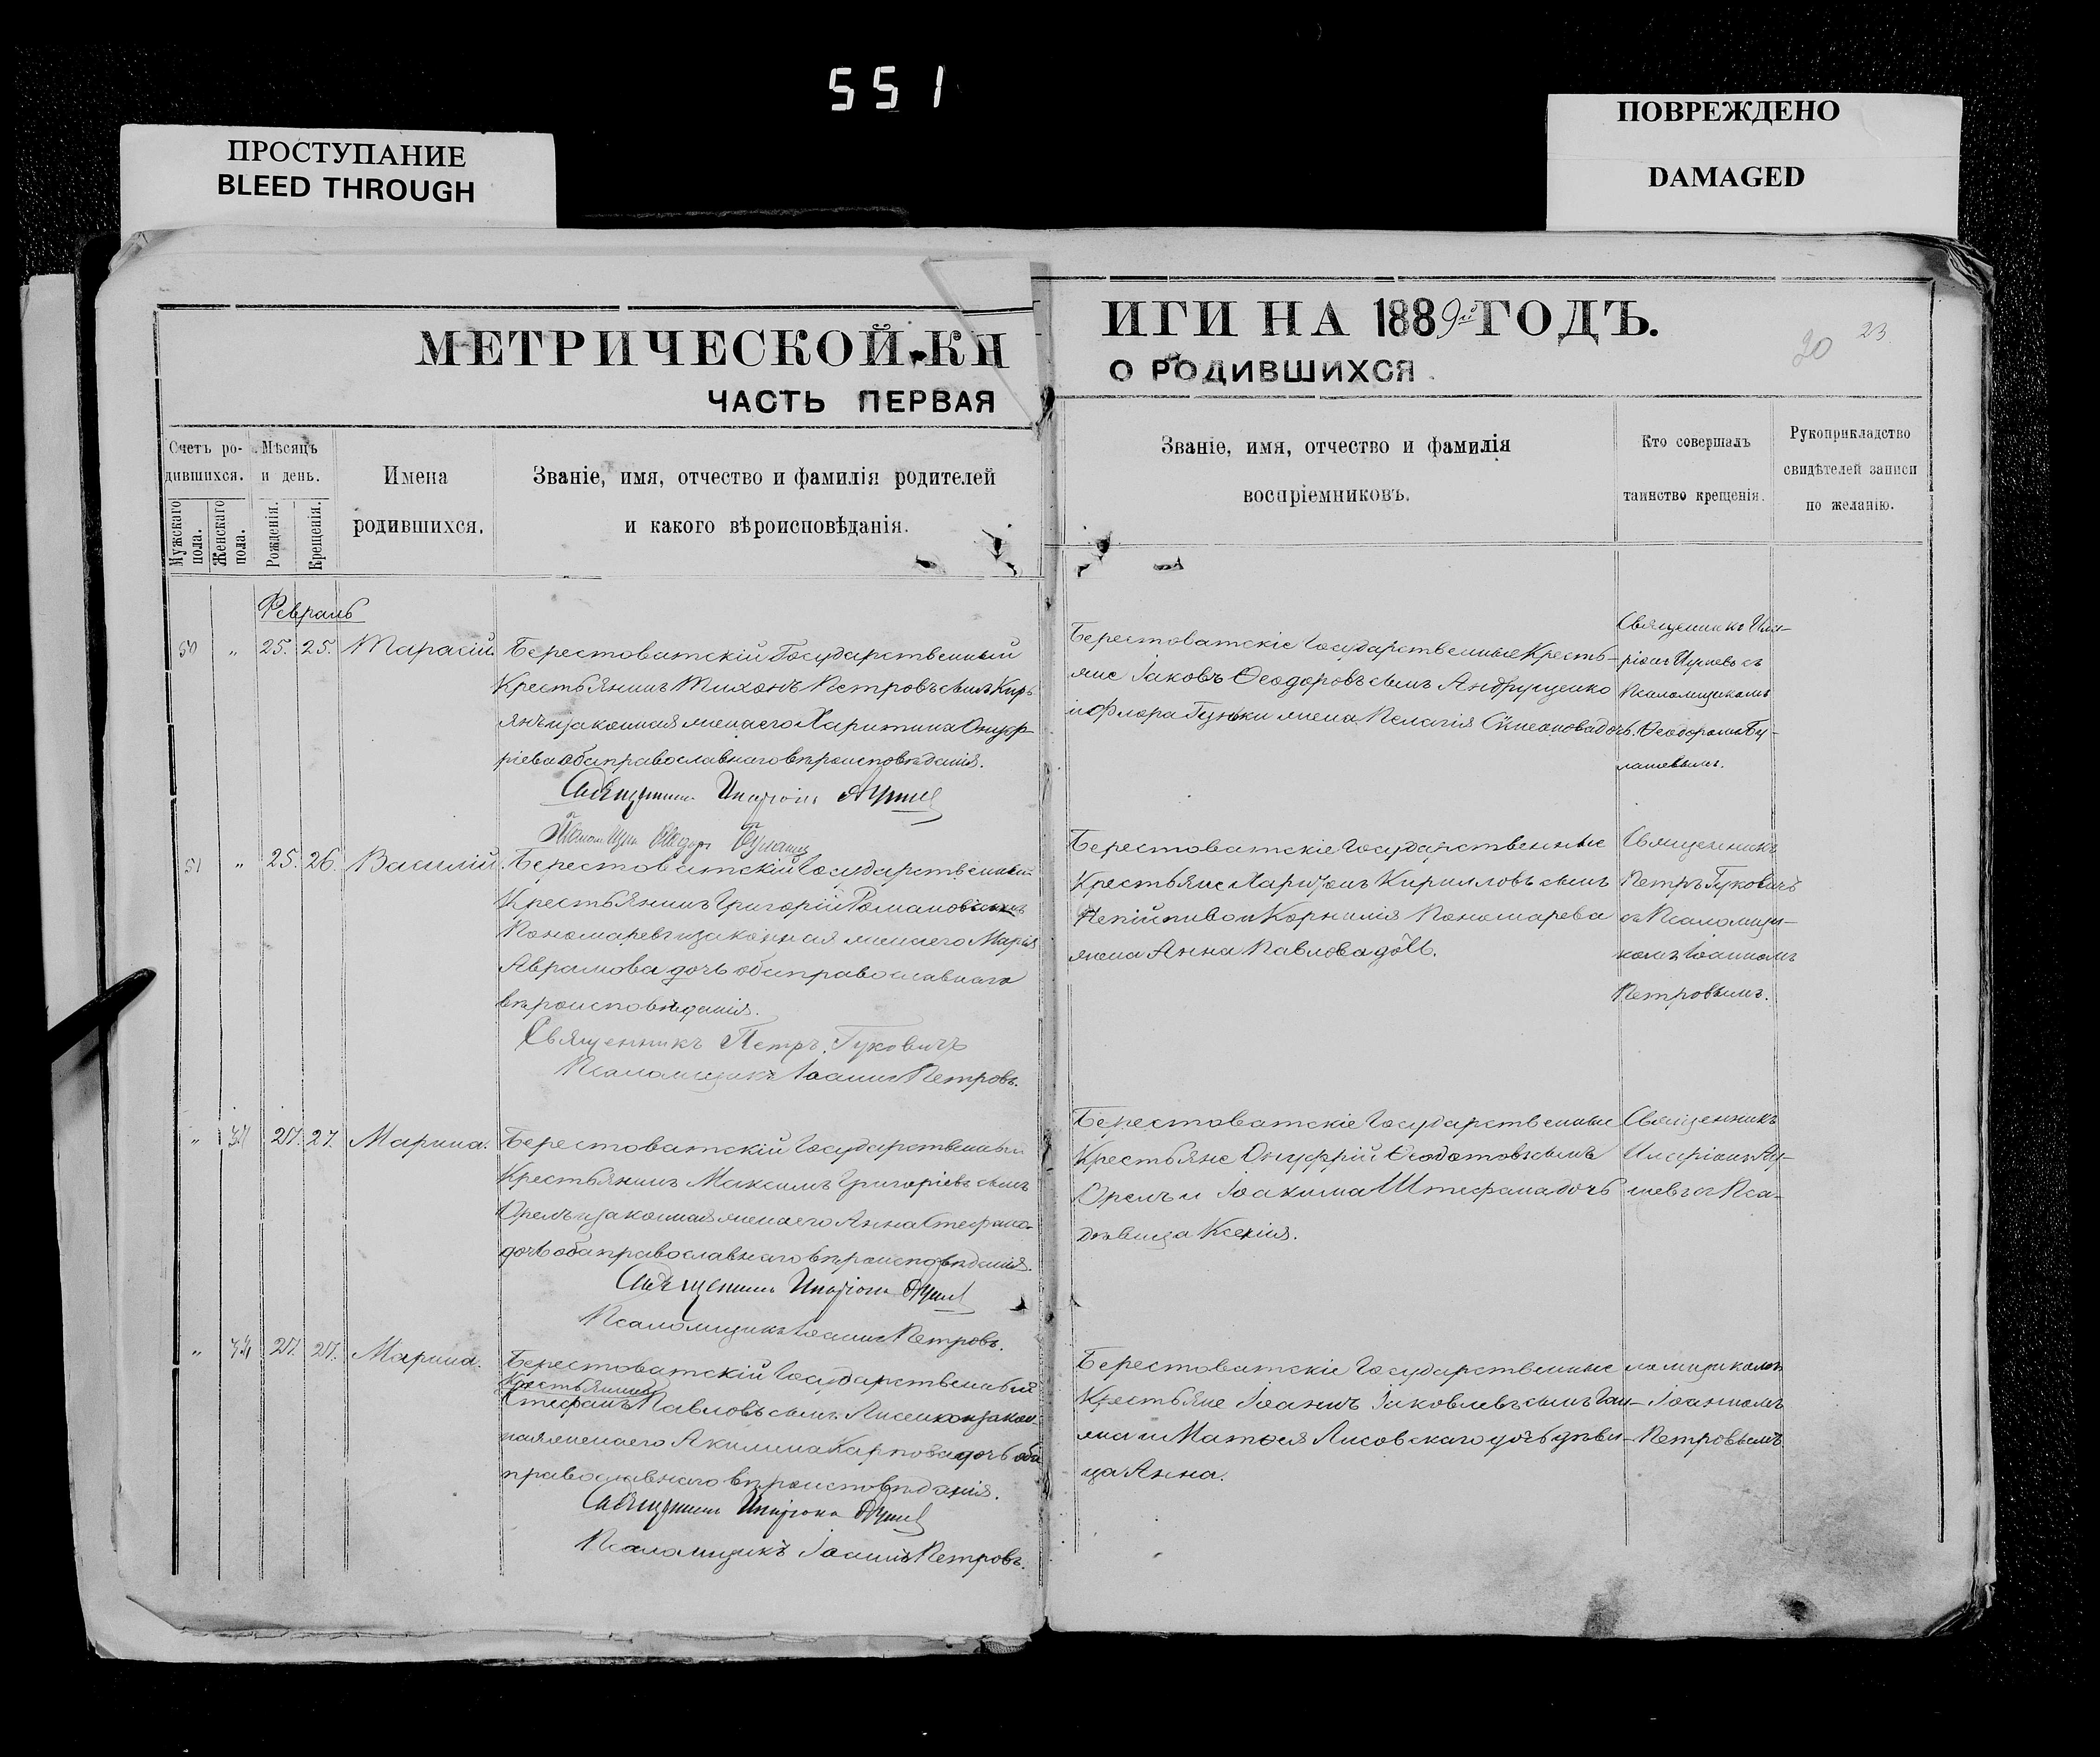 551
ПРОСТУПАНИЕ
BLEED THROUGH
ПОВРЕЖДЕНО
DAMAGED
МЕТРИЧЕСКОЙ КН
ЧАСТЬ ПЕРВАЯ
ИГИ НА 1889й ГОДЪ.
О РОДИВШИХСЯ.
20 23
Счетъ ро-
дившихся.
Мужскаго пола.
Женскаго пола.
Мѣсяцъ
и день.
Рожденія.
Крещенія.
Имена
родившихся.
Званіе, имя, отчество и фамилія родителей
и какого вѣроисповѣданія.
Званіе, имя, отчество и фамилія
воспріемниковъ.
Кто совершалъ
таинство крещенія.
Рукоприкладство
свидѣтелей записи
по желанію.
Февраль
50 " 25. 25. Тарасій.
Берестоватскій Государственный
Крестьянинъ Тихонъ Петровъ сынъ
и законная жена его Харитина Онуф-
ріева оба православнаго вѣроисповѣданія.
Священникъ Иларіонъ
Псаломщикъ Ѳеодоръ
Берестоватскіе Государственные Кресть-
яне Іаковъ Ѳеодоровъ сынъ Андрущенко
и Флора жена Пелагія Сѵмеонова дочь.
Священникъ Ила-
ріонъ съ
Псаломщикомъ
Ѳеодоромъ Бу-
51 " 25. 26. Василій.
Берестоватскій Государственный
Крестьянинъ Григорій Романовъ сынъ
Пономаревъ и законная жена его Марія
Аврамова дочь оба православнаго
вѣроисповѣданія.
Священникъ Петръ Гуковичъ
Псаломщикъ Іоаннъ Петровъ.
Берестоватскіе Государственные
Крестьяне Харитонъ Кирилловъ сынъ
Непійпиво и Корнилія Пономарева
жена Анна Павлова дочь.
Священникъ
Петръ Гуковичъ
съ Псаломщи-
комъ Іоанномъ
Петровымъ.
" 27. 27. Марина.
Берестоватскій Государственный
Крестьянинъ Максимъ Григоріевъ сынъ
Орелъ и законная жена его Анна Стефано-
дочь оба православнаго вѣроисповѣданія.
Священникъ Иларіонъ
Псаломщикъ Іоаннъ Петровъ.
Берестоватскіе Государственные
Крестьяне Онуфрій Ѳеодотовъ сынъ
Орелъ и Іоакима Штефана дочь
дѣвица Ксенія.
Священникъ
Иларіонъ
съ Пса-
" 27. 27. Марина.
Берестоватскій Государственный
Крестьянинъ
Стефанъ Павловъ сынъ Лисенко и закон-
ная жена его Акилина Карпова дочь оба
православнаго вѣроисповѣданія.
Священникъ Иларіонъ
Псаломщикъ Іоаннъ Петровъ.
Берестоватскіе Государственные
Крестьяне Іоаннъ Іаковлевъ сынъ
и Матѳея Лисовскаго дочь дѣви-
ца Анна.
ломщикомъ
Іоанномъ
Петровымъ